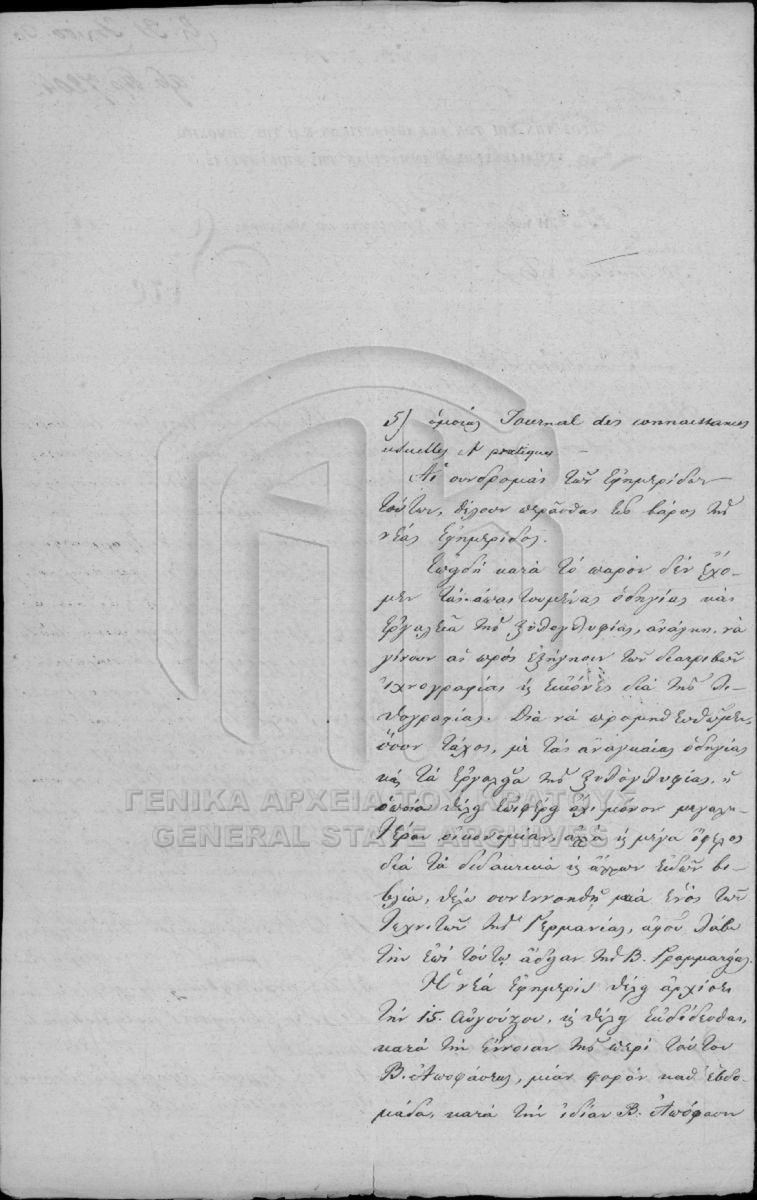 5) ὁμοίως Journal des connaissances
usuelles et pratiques —
Αἱ συνδρομαὶ τῶν Ἐφημερίδων
τούτων, θέλουν περασθῆ εἰς βάρος τῆς
νέας Ἐφημερίδος.
Ἐπειδὴ κατὰ τὸ παρὸν δὲν ἔχο-
μεν τὰς ἀπαιτουμένας ὁδηγίας καὶ
ἐργαλεῖα τῆς ξυλογλυφίας, ἀνάγκη νὰ
γίνουν αἱ πρὸς ἐξήγησιν τῶν διατριβῶν
ἰχνογραφίαι κ εἰκόνες διὰ τῆς λι-
θογραφίας. Διὰ νὰ προμηθευθῶμεν,
ὅσον τάχος, μὲ τὰς ἀναγκαίας ὁδηγίας
καὶ τὰ ἐργαλεῖα τῆς ξυλογλυφίας, ἡ
ὁποία θέλει ἐπιφέρει ὄχι μόνον μεγαλη-
τέραν οἰκονομίαν ἀλλὰ κ μέγα ὄφελος
διὰ τὰ διδακτικὰ κ ἄλλων εἰδῶν βι-
βλία, θέλω συνεννοηθῆ μετὰ ἑνὸς τῶν
τεχνιτῶν τῆς Γερμανίας, ἀφοῦ λάβω
τὴν ἐπὶ τούτῳ ἄδειαν τῆς Β. Γραμματείας.
Ἡ νέα Ἐφημερὶς θέλει ἀρχίσει
τὴν 15. Αὐγούστου, κ θέλει ἐκδίδεσθαι,
κατὰ τὴν ἔννοιαν τῆς περὶ τούτου
Β. Ἀποφάσεως, μίαν φορὰν καθ' ἑβδο-
μάδα, κατὰ τὴν ἰδίαν Β. Ἀπόφασιν
ΓΕΝΙΚΑ ΑΡΧΕΙΑ ΤΟΥ ΚΡΑΤΟΥΣ
GENERAL STATE ARCHIVES